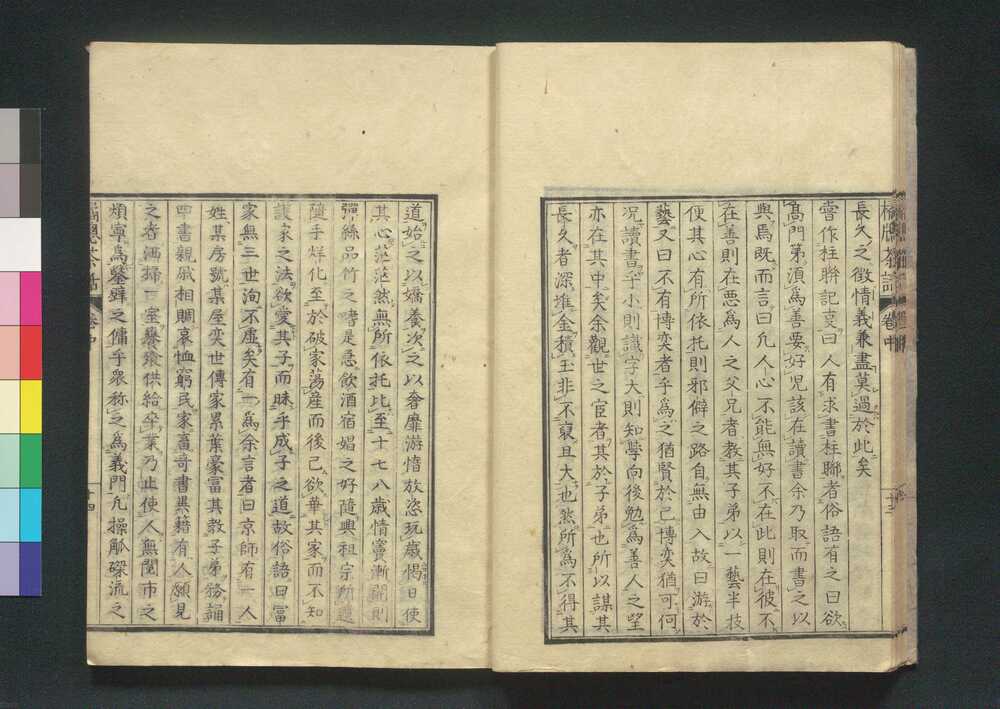 茶話 卷中
長久之徵情義兼盡莫過於此矣
嘗作柱聯記曰人有求書柱聯者俗語有之曰欲
高門第須為善要好児該在讀書余乃取而書之以
與焉既而言曰凢人心不能無好不在此則在彼不
在善則在惡為人之父兄者教其子弟以一藝半技
便其心有所依托則邪僻之路自無由入故曰游於
藝又曰不有博奕者乎為之猶賢於已博奕猶可何
况讀書乎小則識字大則知學向後勉為善人之望
亦在其中矣余觀世之宦者其於子弟也所以謀其
長久者深堆金積玉非不裒且大也然所為不得其
道始之以嬌養次之以奢靡游惰放恣玩歲愒日使
其心茫茫然無所依托比至十七八歲情竇漸開則
彈絲品竹之嗜是急飲酒宿娼之好隨興祖宗所遺
隨手烊化至於破家蕩産而後已欲華其家而不知
護家之法欲愛其子而昧乎成子之道故俗語曰冨
家無三世洵不虛矣有一為余言者曰京師有一人
姓某房號某屋奕世傳家累葉豪冨其教子弟務誦
中書親戚相賙哀恤窮民家畜奇書異籍有人願見
之者洒掃一室飧供給卒業乃止使人無閱市之
煩寧為鑿壁之傭乎眾称之為義門凢操觚流之
茶話 卷中 十四